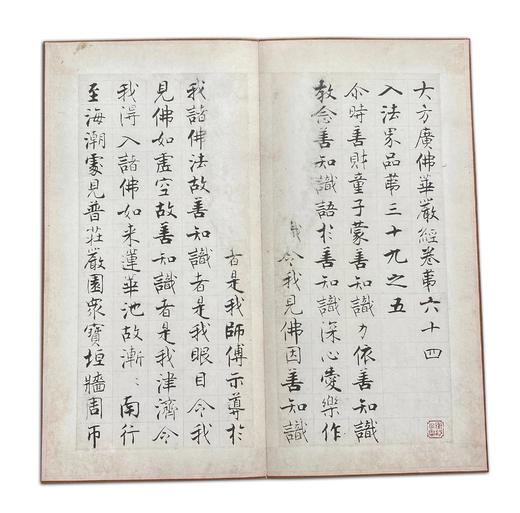 大方廣佛華嚴經卷第六十四
入法界品第三十九之五
尒時善財童子蒙善知識力依善知識
教念善知識語於善知識深心愛樂作
念令我見佛因善知識
者是我師傅示導於
我諸佛法故善知識者是我眼目令我
見佛如虛空故善知識者是我津濟令
我得入諸佛如来蓮華池故漸〻南行
至海潮處見普莊嚴園衆寶垣牆周帀